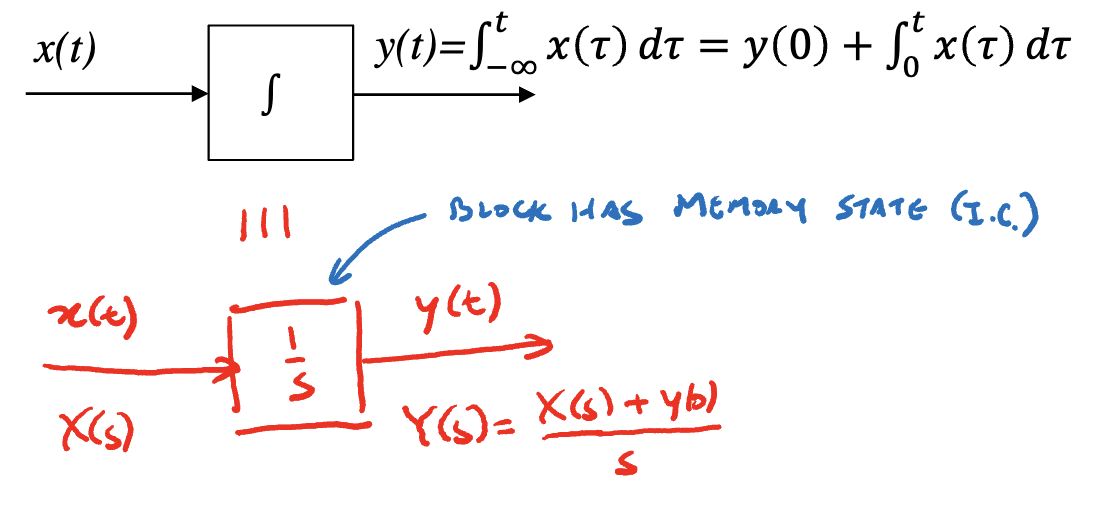 x(t)
∫
y(t)=∫_{-∞}^{t} x(τ) dτ = y(0) + ∫_{0}^{t} x(τ) dτ
BLOCK HAS MEMORY STATE (I.C.)
|||
x(t)
1/s
y(t)
X(s)
Y(s) = (X(s) + y(0))/s